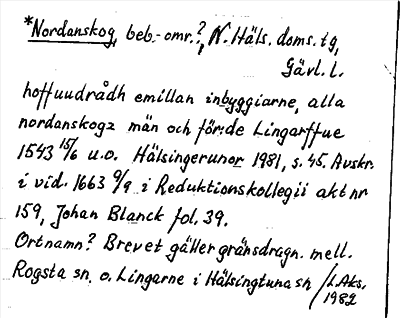 *Nordanskog, beb.-omr.?, N. Häls. doms.tg,
Gävl. l.
hoffuudrådh emillan inbyggiarne, alla
nordanskogz män och för:de Lingarffue
1543 15/6 u.o. Hälsingerunor 1981, s. 45. Avskr.
i vid. 1663 9/9 i Reduktionskollegii akt nr
159, Johan Blanck fol. 39.
Ortnamn? Brevet gäller gränsdragn. mell.
Rogsta sn o. Lingarne i Hälsingtuna sn / L.Aks.
1982